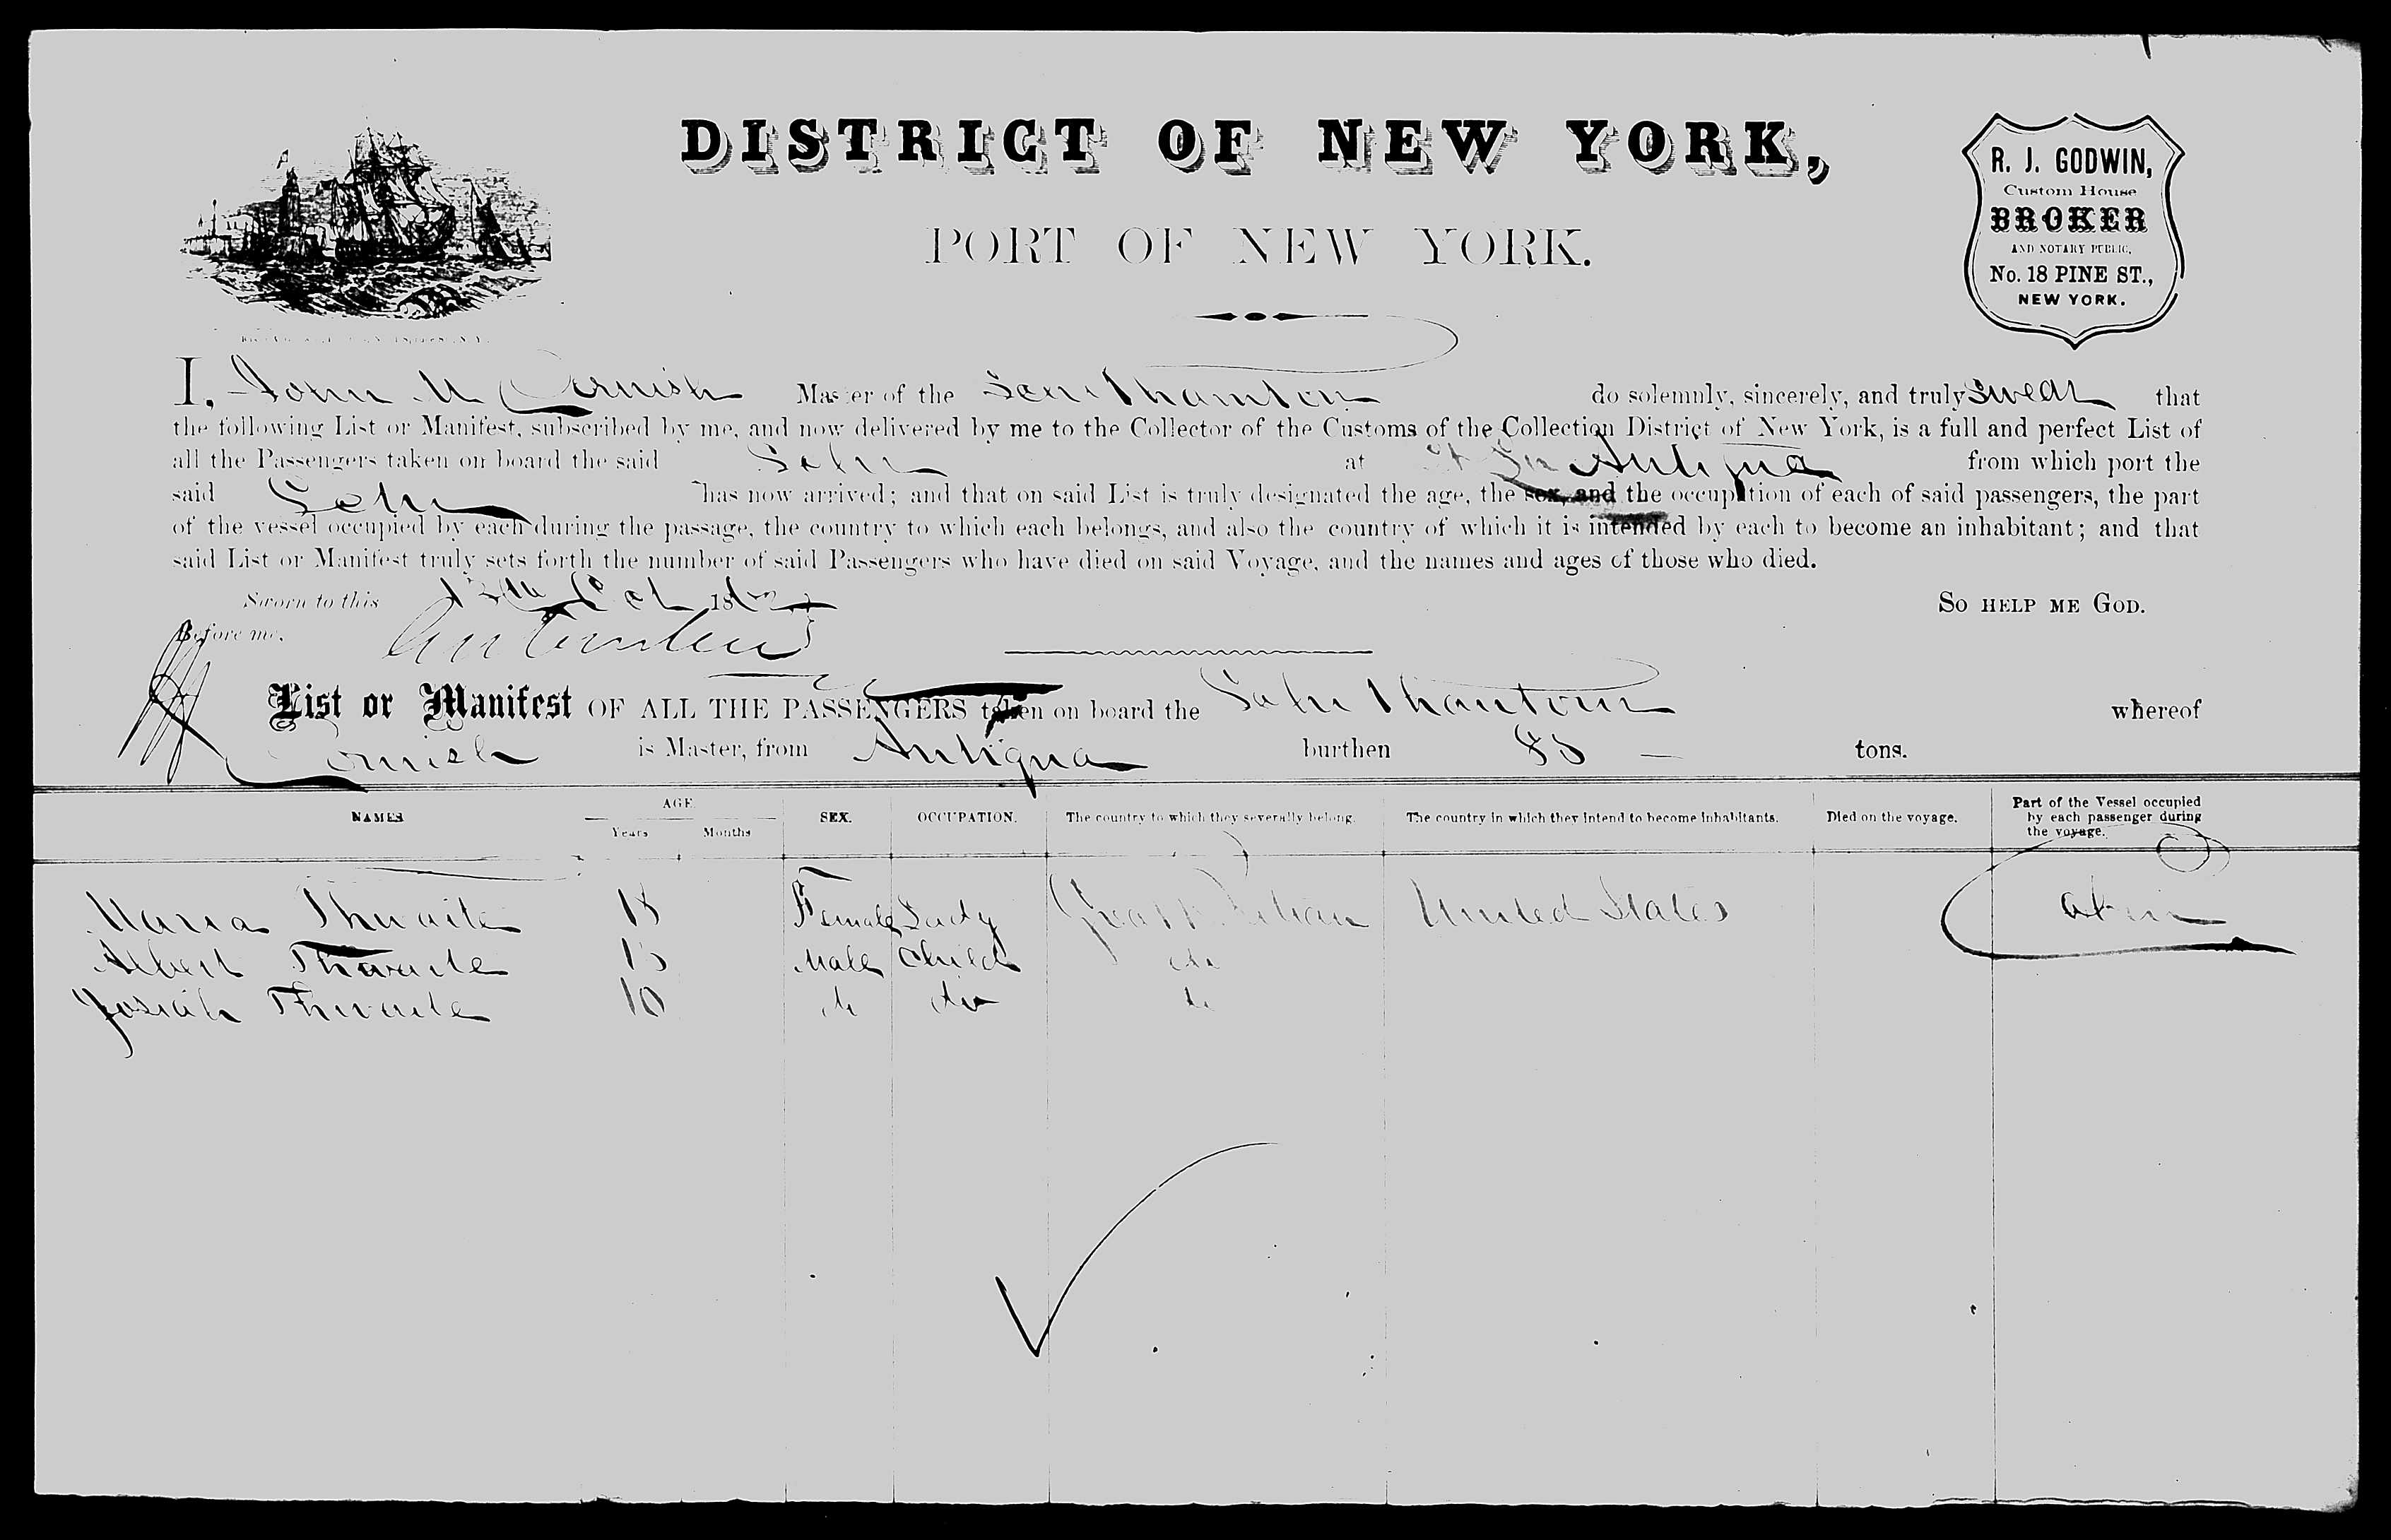 DISTRICT OF NEW YORK,
PORT OF NEW YORK.
R. J. GODWIN,
Custom House
BROKER
AND NOTARY PUBLIC,
No. 18 PINE ST.,
NEW YORK.
I, John M Cornish Master of the do solemnly, sincerely, and truly swear that
the following List or Manifest, subscribed by me, and now delivered by me to the Collector of the Customs of the Collection District of New York, is a full and perfect List of
all the Passengers taken on board the said Schr at Antigua from which port the
said Schr has now arrived; and that on said List is truly designated the age, the sex, and the occupation of each of said passengers, the part
of the vessel occupied by each during the passage, the country to which each belongs, and also the country of which it is intended by each to become an inhabitant; and that
said List or Manifest truly sets forth the number of said Passengers who have died on said Voyage, and the names and ages of those who died.
Sworn to this 13th Oct 186 SO HELP ME GOD.
Before me,
List or Manifest OF ALL THE PASSENGERS taken on board the Schr whereof
Cornish is Master, from Antigua burthen tons.
NAMES AGE SEX. OCCUPATION. The country to which they severally belong. The country in which they intend to become inhabitants. Died on the voyage. Part of the Vessel occupied
Years Months by each passenger during
the voyage.
Maria Thwaite 18 Female Lady Great Britain United States
Albert Thwaite Male Child do
Josiah Thwaite 10 do do do